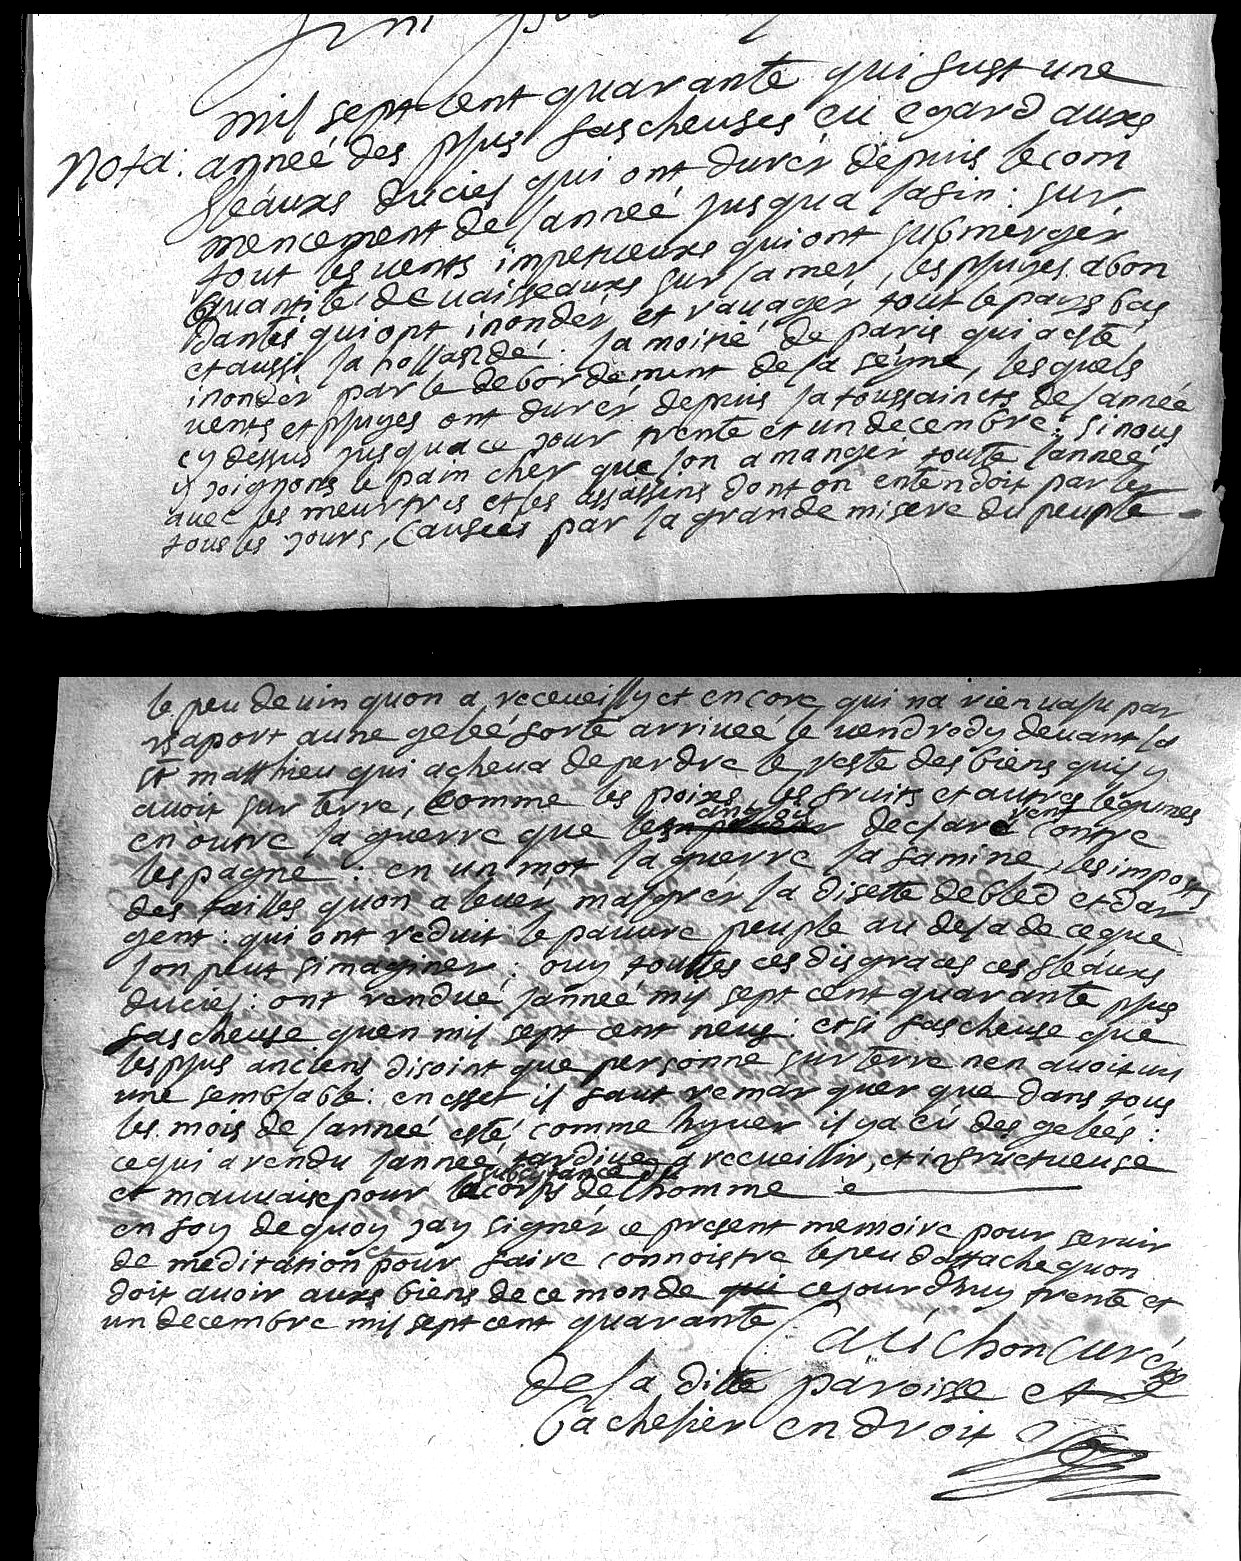 mil sept cent quarante qui fust une
Nota: anneé des plus fascheuses eu egard auxs
fleauxs du ciel qui ont durér depuis le com
mencement de lanneé jusqua la fin: sur
tout les vents impetueuxs qui ont submerger
quantité de vaisseauxs sur la mer, les pluyes abon
dantes qui ont inondér et rauager tout le pays bas
et aussi la hollande: la moitié de paris qui a esté
inondér par le debordement de la seyne, lesquels
vents et pluyes ont durér depuis la toussaincts de lanneé
cy dessus jusqua ce jour trente et un decembre: si nous
y joignons le pain cher que lon a mangér toute lanneé
avec les meurtres et les assassins dont on entendoit parler
tous les jours, causées par la grande misere du peuple
le peu de uin quon a receuilly et encore qui na rien valu par
raport a une geleé forte arriueé le uendredy deuant la
st matthieu qui acheua de perdre le reste des biens quil y
auoit sur terre, comme les poixs, les fruits et autres legumes
en outre la guerre que les anglois declarerent contre
lespagne: en un mot la guerre la famine, les impots
des tailles quon a leuér, malgrér la disette de bled et dar
gent: qui ont reduit le pauure peuple au dela de ce que
lon peut simaginer: ouy touttes ces disgraces ces fleauxs
du ciel: ont rendue lanneé mil sept cent quarante plus
fascheuse quen mil sept cent neuf: et si fascheuse que
les plus anciens disoint que personne sur terre nen auoit uu
une semblable: en effet il faut remarquer que dans tous
les mois de lanneé esté comme hyuer il y a eu des gelees:
ce qui a rendu lanneé tardiue a recueillir, et infructueuse
et mauuaise pour la subsistance du corps de lhomme
en foy de quoy jay signér ce present memoire pour seruir
de meditation et pour faire connoistre le peu dattache quon
doit auoir auxs biens de ce monde qui cejourdhuy trente et
un decembre mil sept cent quarante
Cauchon curé
de la ditte paroisse et
bachelier en droit